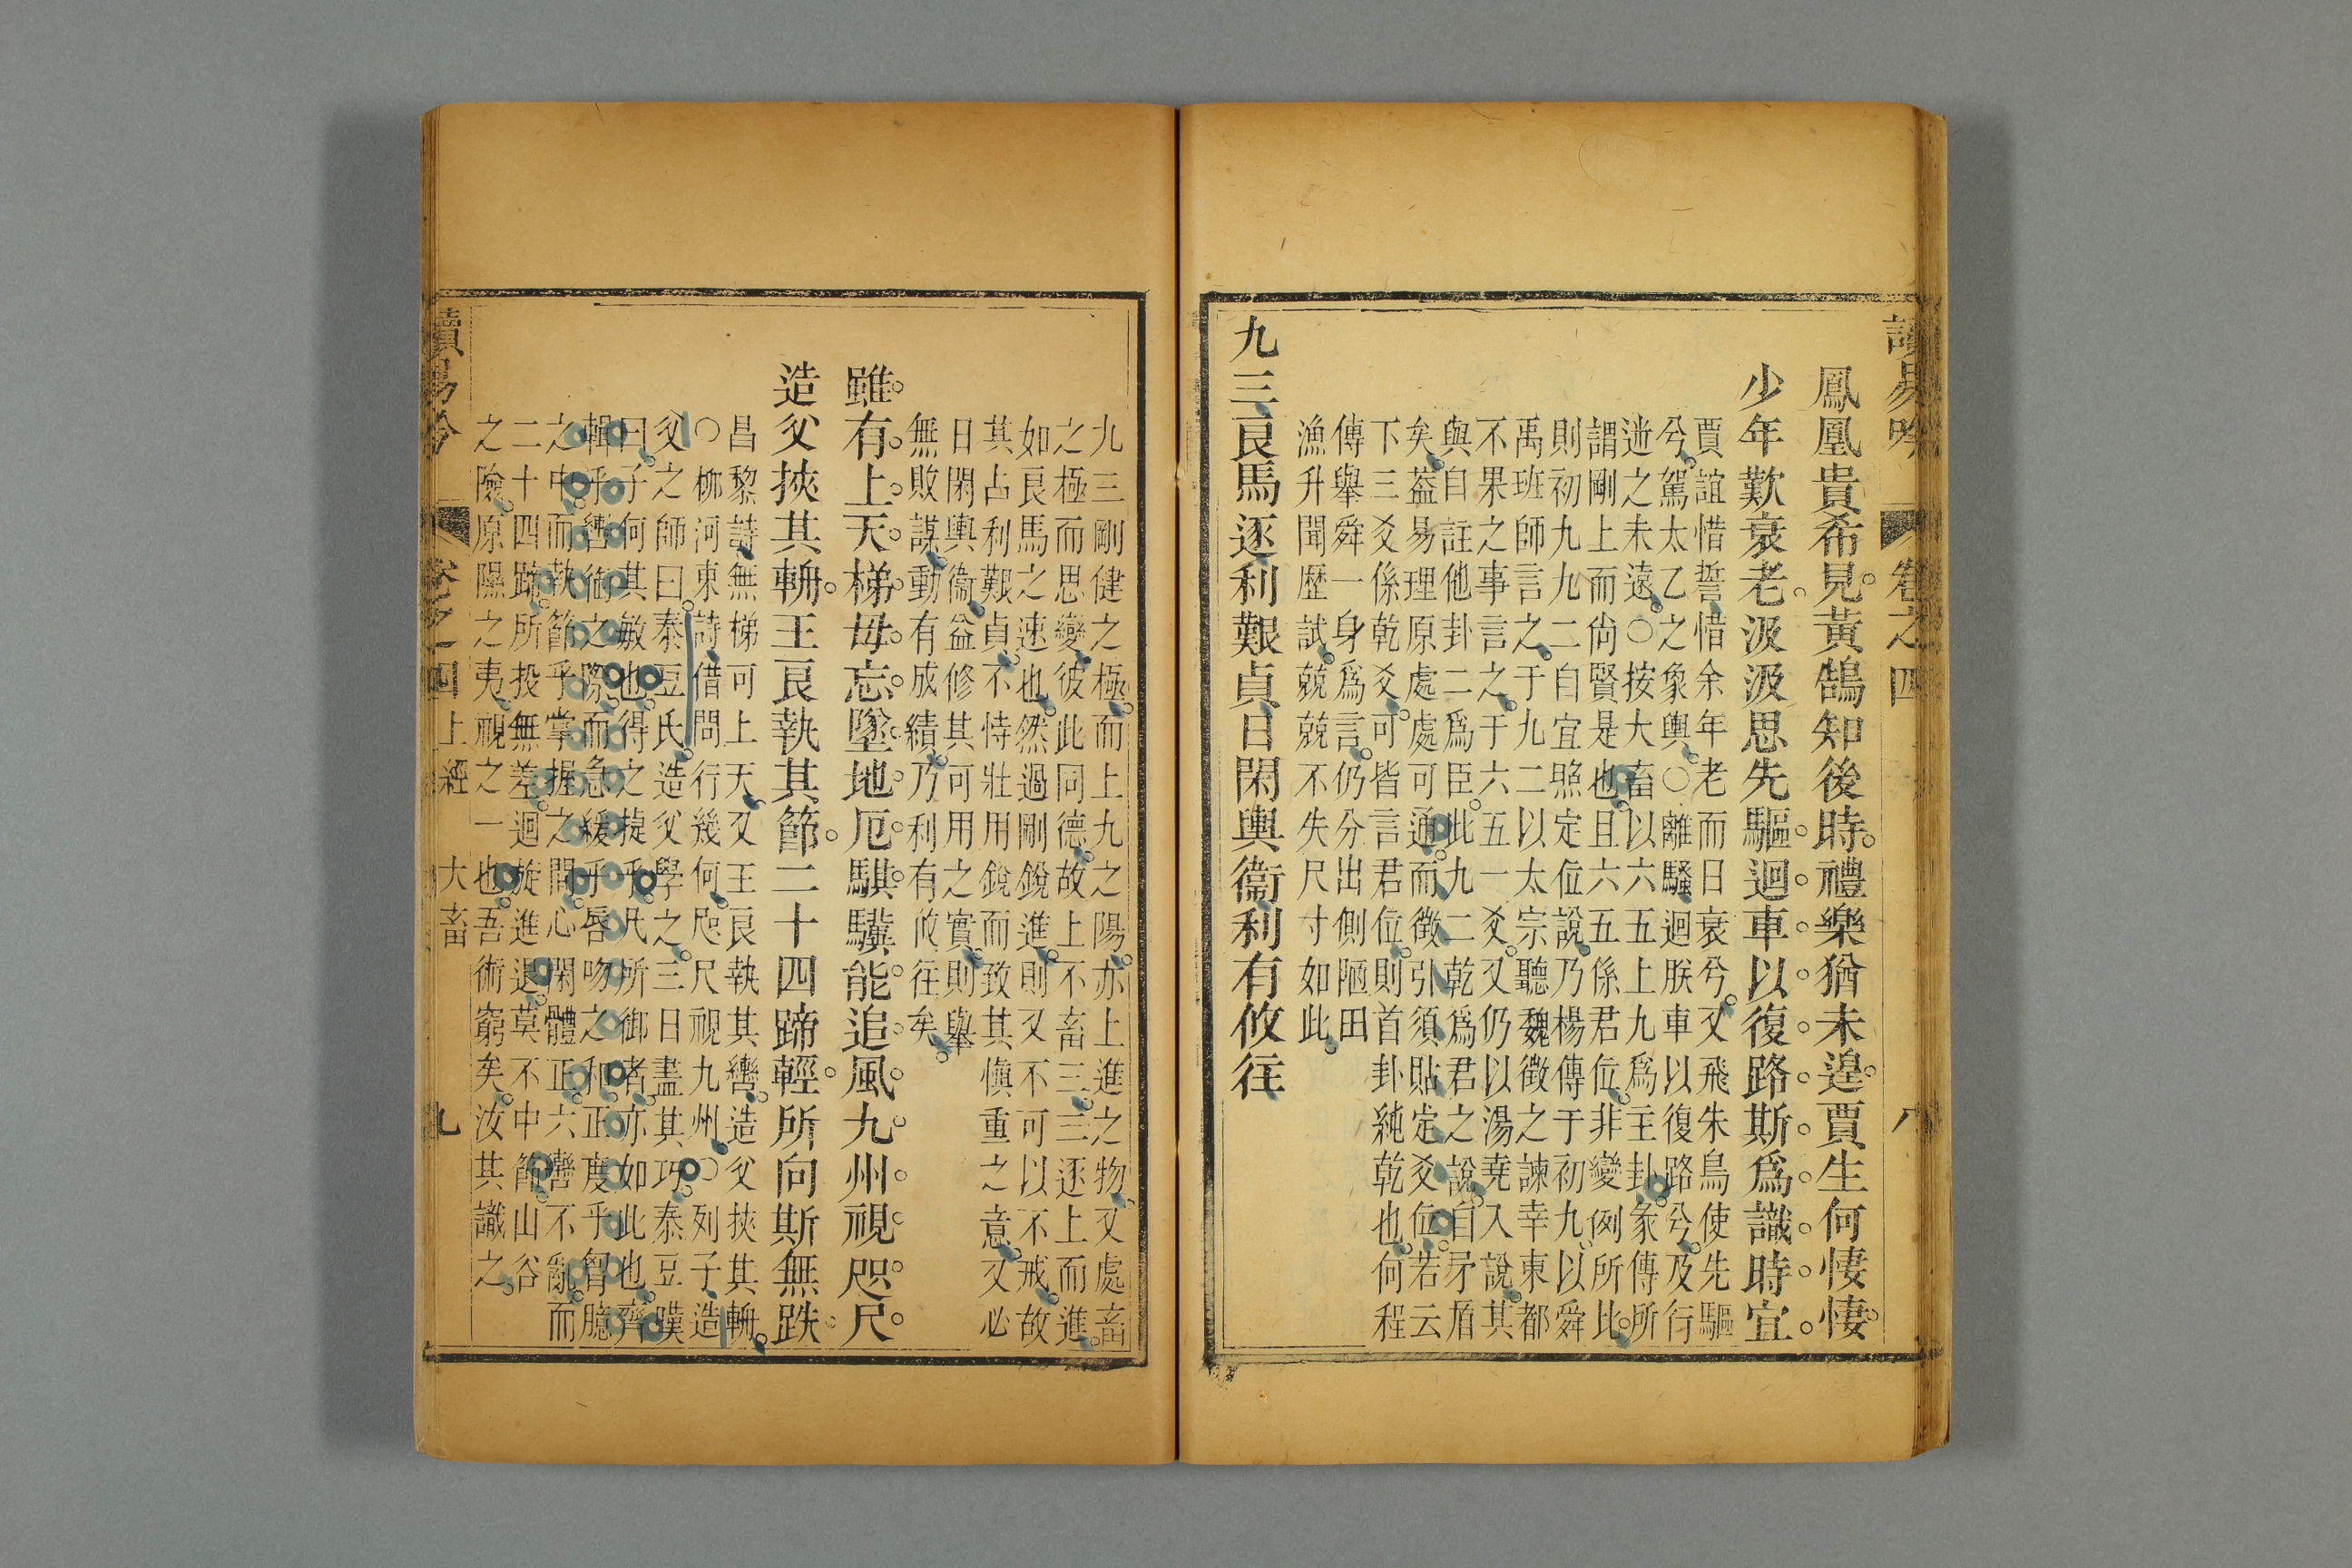 讀易吟 卷之四 八
鳳凰貴希見黃鵠知後時禮樂猶未遑賈生何悽悽
少年歎衰老汲汲思先驅迴車以復路斯爲識時宜
賈誼惜誓惜余年老而日衰兮又飛朱鳥使先驅
兮駕太乙之象輿○離騷迴朕車以復路兮及行
迷之未遠○按大畜以六五上九爲主卦彖傳所
謂剛上而尙賢是也且六五係君位非變例所比
則初九九二自宜照定位說乃楊傳于初九以舜
禹班師言之于九二以太宗聽魏徵之諫幸東都
不果之事言之于六五一爻又仍以湯堯入說其
與自註他卦二爲臣此九二乾爲君之說自矛盾
矣葢易理原處處可通而徵引須貼定爻位若云
下三爻係乾爻可皆言君位則首卦純乾也何程
傳舉舜一身爲言仍分出側陋田
漁升聞歷試兢兢不失尺寸如此
九三良馬逐利艱貞日閑輿衞利有攸往
九三剛健之極而上九之陽亦上進之物又處畜
之極而思變彼此同德故上不畜三三逐上而進
如良馬之速也然過剛銳進則又不可以不戒故
其占利艱貞不恃壯用銳而致其愼重之意又必
日閑輿衞益修其可用之實則舉
無敗謀動有成績乃利有攸往矣
雖有上天梯毋忘墜地厄騏驥能追風九州視咫尺
造父挾其輈王良執其節二十四蹄輕所向斯無跌
昌黎詩無梯可上天又王良執其轡造父挾其輈
○柳河東詩借問行幾何咫尺視九州○列子造
父之師曰泰豆氏造父學之三日盡其巧泰豆嘆
曰子何其敏也得之捷乎凡所御者亦如此也齊
輯乎轡銜之際而急緩乎脣吻之和正度乎胷臆
之中而執節乎掌握之間心閑體正六轡不亂而
二十四蹄所投無差迴旋進退莫不中節山谷
之險原隰之夷視之一也吾術窮矣汝其識之
讀易吟 卷之四 上經 大畜 九